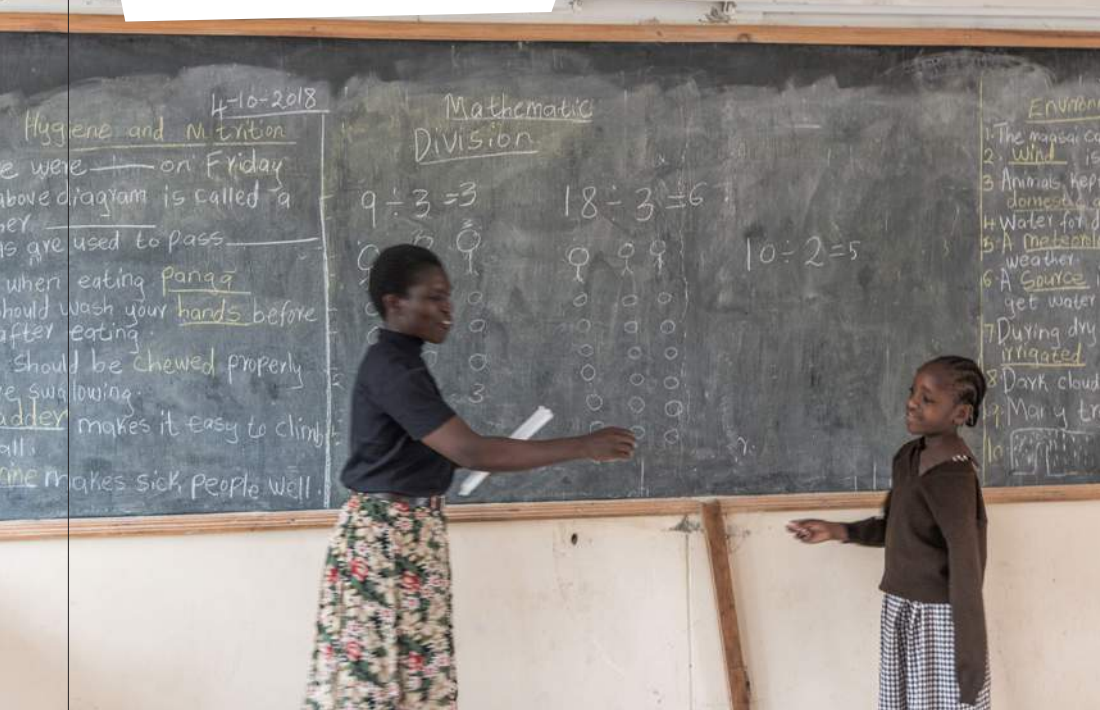 4-10-2018
Hygiene and Nutrition
e were ____ on Friday
above diagram is called a
____
are used to pass ____
when eating panga
should wash your hands before
after eating.
should be chewed properly
swallowing.
adder makes it easy to climb
all.
makes sick people well.
Mathematic
Division
9÷3=3
18÷3=6
10÷2=5
3
3
Environ
1. The maasai
2. Wind is
3 Animals kep
domestic
4 Water for d
5. A meteorolo
weather.
6. A Source
get water
7 During dry
irrigated
8 Dark cloud
9. Many tr
10